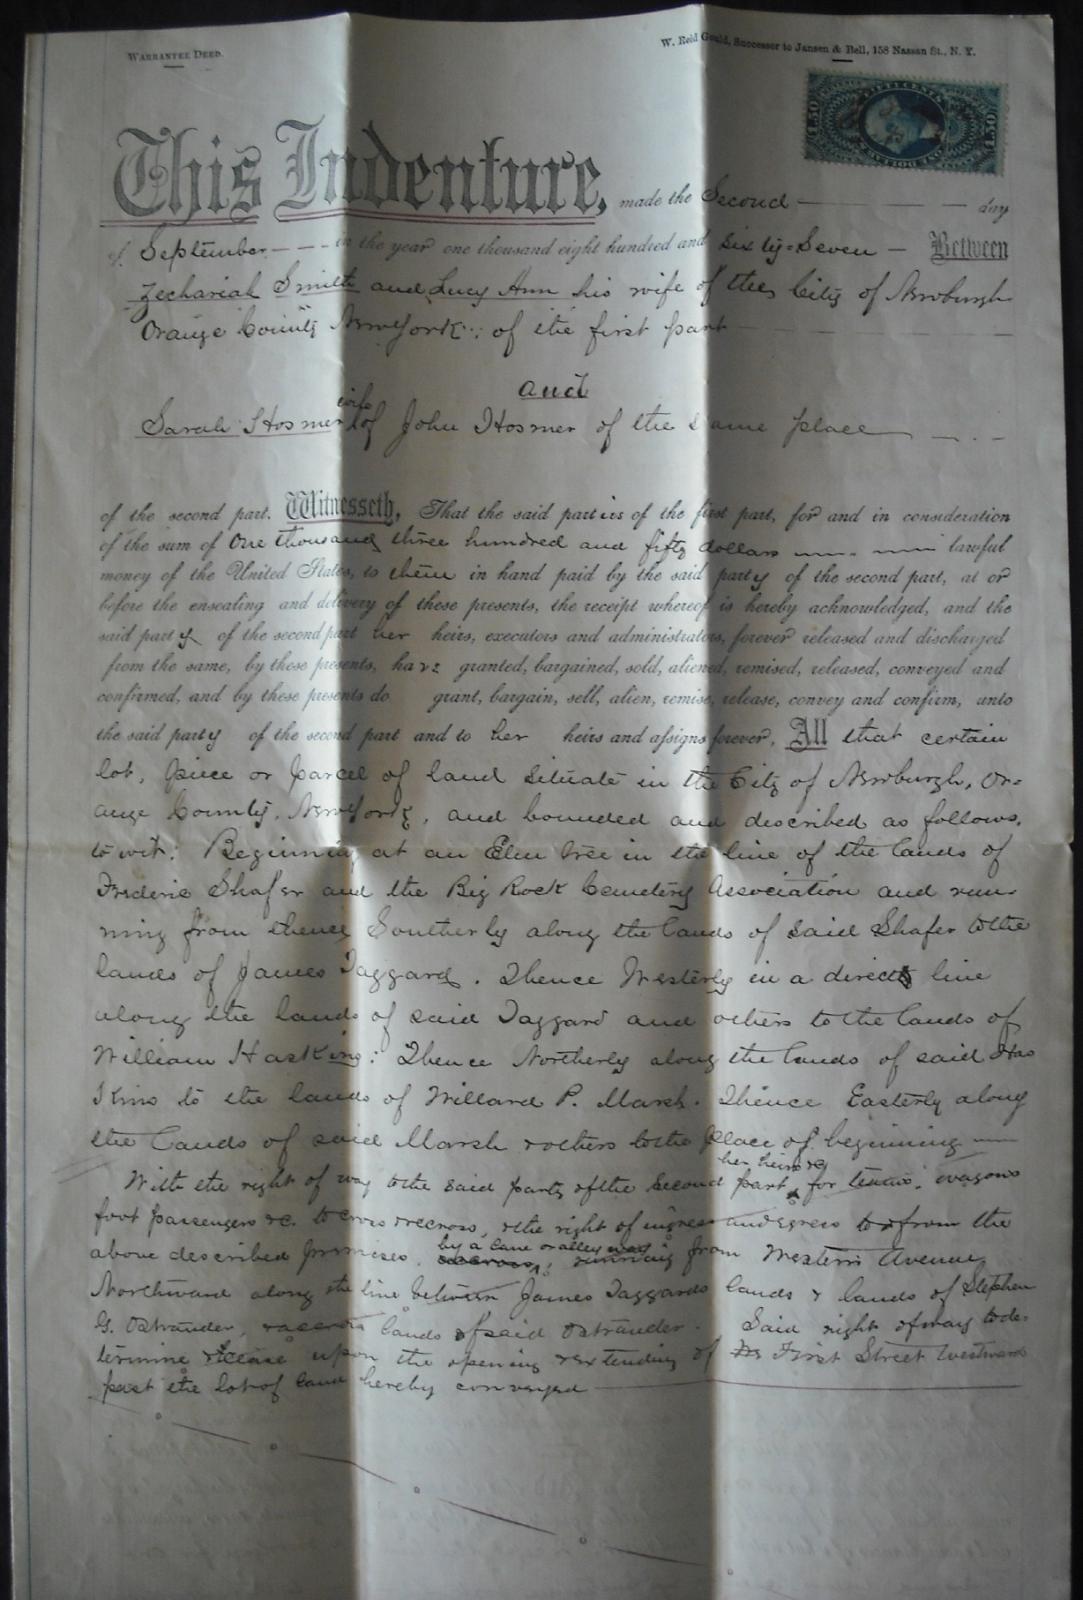 WARRANTEE DEED.
W. Reid Gould, Successor to Jansen & Bell, 158 Nassau St., N. Y.
$1.50 $1.50
This Indenture, made the Second day
of September in the year one thousand eight hundred and Sixty=Seven Between
Zechariah Smith and Lucy Ann his wife of the City of Newburgh
Orange County New York: of the first part
and
wife
Sarah Hosmer of John Hosmer of the Same place
of the second part. Witnesseth, That the said parties of the first part, for and in consideration
of the sum of One thousand three hundred and fifty dollars lawful
money of the United States, to them in hand paid by the said party of the second part, at or
before the ensealing and delivery of these presents, the receipt whereof is hereby acknowledged, and the
said party of the second part her heirs, executors and administrators, forever released and discharged
from the same, by these presents, have granted, bargained, sold, aliened, remised, released, conveyed and
confirmed, and by these presents do grant, bargain, sell, alien, remise, release, convey and confirm, unto
the said party of the second part and to her heirs and assigns forever, All that certain
lot, piece or parcel of land situate in the City of Newburgh, Or=
ange County, New York, and bounded and described as follows,
to wit: Beginning at an Elm tree in the line of the lands of
Frederic Shafer and the Big Rock Cemetery Association and run-
ning from thence Southerly along the lands of said Shafer to the
lands of James Taggard. Thence Westerly in a direct line
along the lands of said Taggard and others to the lands of
William Haskins: Thence Northerly along the lands of said Has
kins to the lands of Willard P. Marsh. Thence Easterly along
the lands of said Marsh & others to the place of beginning
her heirs &c
With the right of way to the said party of the second part, for teams, wagons
foot passengers &c. to cross & recross, & the right of ingress and egress to & from the
by a lane or alley way
above described premises, running from Western Avenue
Northward along the line between James Taggards lands & lands of Stephen
G. Ostrander, lands of said Ostrander. Said right of way to de-
termine & cease upon the opening & extending of First Street Westward
past the lot of land hereby conveyed